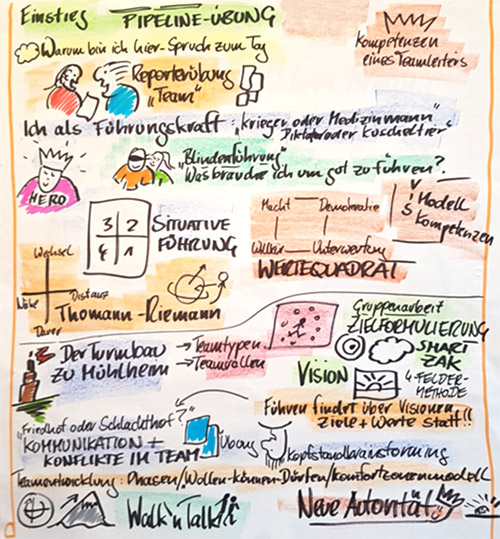 Einstieg PIPELINE-ÜBUNG
Warum bin ich hier - Spruch zum Tag
Kompetenzen
eines Teamleiters
Reporterübung
"Team"
Ich als Führungskraft: "Krieger oder Medizinmann"
"Diktator oder Kuscheltier"
HERO
"Blindenführung"
Was brauche ich um gut zu führen?
3 2
4 1
SITUATIVE
FÜHRUNG
Macht Demokratie
Willkür Unterwerfung
WERTEQUADRAT
Modell
Kompetenzen
Wechsel
Nähe Distanz
Dauer
Thomann-Riemann
Der Turmbau
zu Mühlheim
→ Teamtypen
→ Teamrollen
Gruppenarbeit
ZIELFORMULIERUNG
SMART
ZAK
VISION
4-FELDER-
METHODE
Führen findet über Visionen
Ziele + Werte statt!!
"Friedhof oder Schlachthof?"
KOMMUNIKATION +
KONFLIKTE IM TEAM
Übung
Kopfstandbrainstorming
Teamentwicklung: Phasen/Wollen-Können-Dürfen/Komfortzonenmodell
Walk'n Talk
Neue Autorität